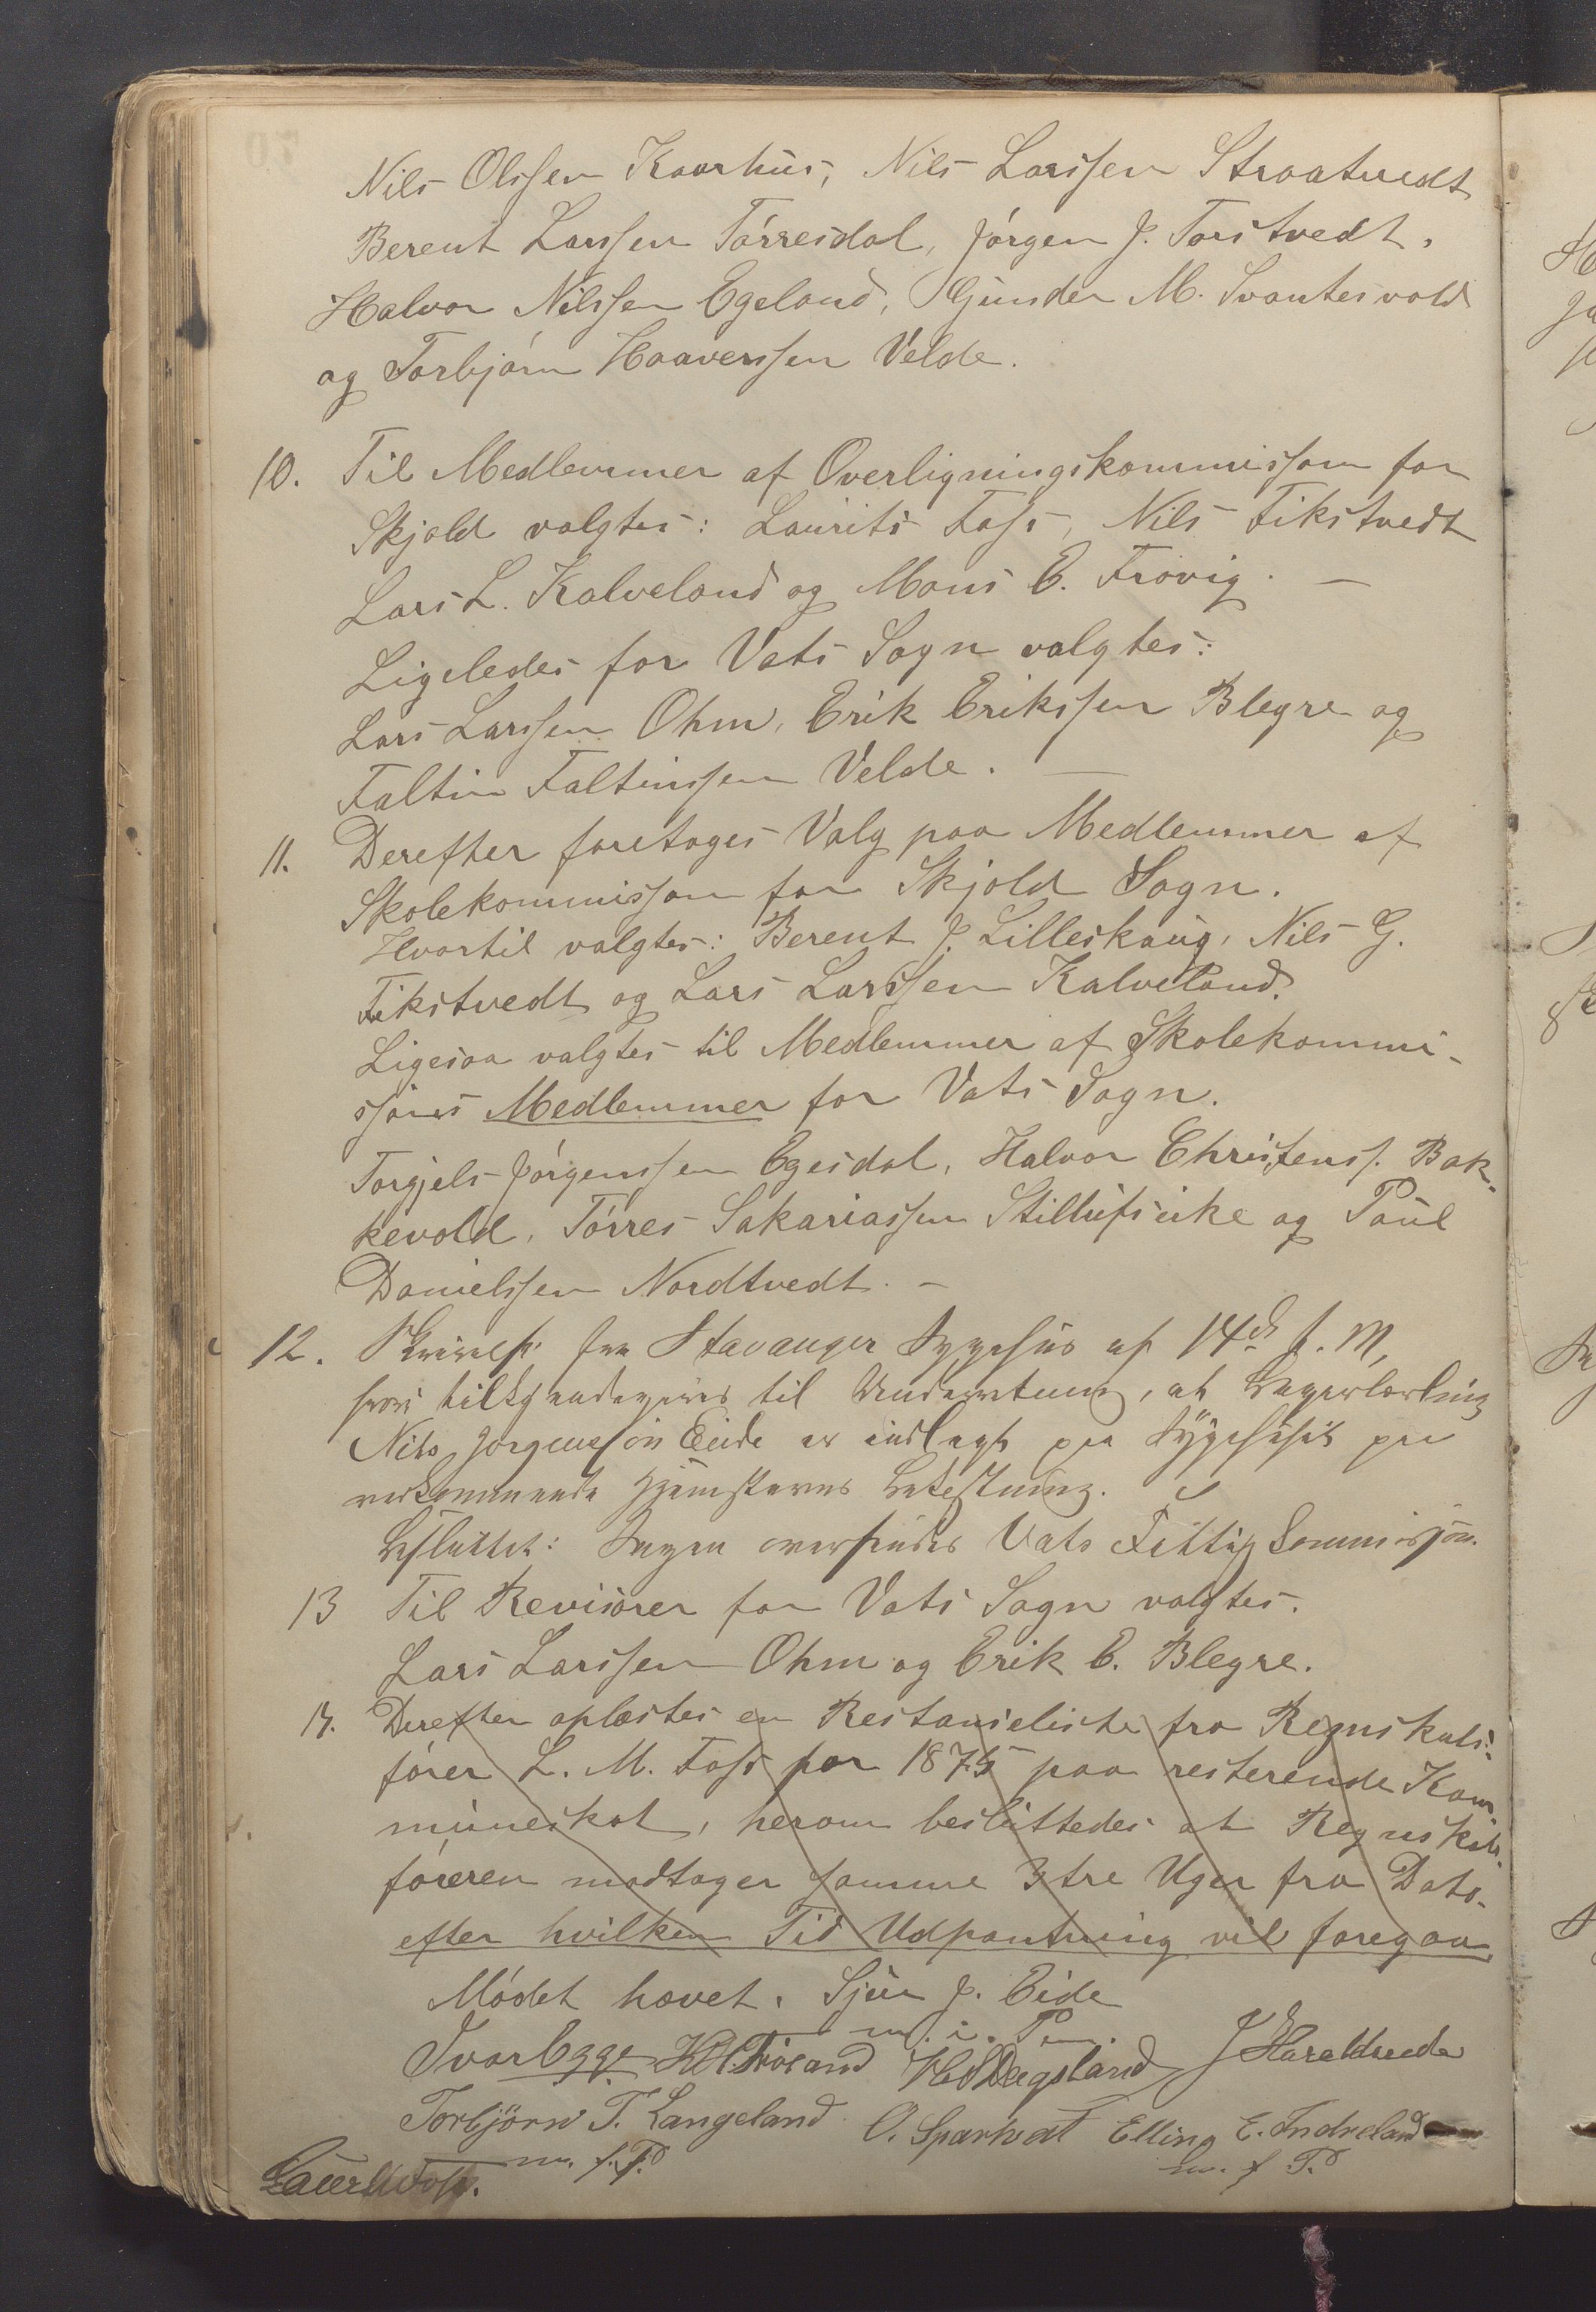 Nils Olssen Kaarhus, Nils Larssen Straatvedt
Berent Larssen Tørresdal, Jørgen J. Torstvedt,
Halvor Nilssen Egeland, Gunder M. Svantesvold
og Torbjørn Haaverssen Velde.
10. Til Medlemmer af Overligningskommissjon for
Skjold valgtes: Laurits Foss, Nils Fikstvedt
Lars L. Kalveland og Mons E. Frøvig. —
Ligeledes for Vats Sogn valgtes:
Lars Larssen Ohm, Erik Erikssen Blegre og
Faltin Faltinssen Velde. —
11. Derefter foretoges Valg paa Medlemmer af
Skolekommissjon for Skjold Sogn.
Hvortil valgtes: Berent J. Lilleskaug, Nils G.
Fikstvedt og Lars Larssen Kalveland.
Ligesaa valgtes til Medlemmer af Skolekommi-
ssjones Medlemmer for Vats Sogn.
Torgjels Jørgenssen Egesdal, Halvor Christenss. Bak-
kevold, Tørres Sakariassen Stillufseike og Paul
Danielssen Nordtvedt. —
12. Skrivelse fra Stavanger Sygehus af 14de d. M,
hvori tilkjendegives til Underretning, at Bagerlærling
Nils Jørgenssøn Eide er indlagt paa Sygehuset paa
vedkommende Hjemstavns Bekostning.
Besluttet: Sagen oversendes Vats Fattig Commissjon.
13 Til Revisorer for Vats Sogn valgtes.
Lars Larssen Ohm og Erik E. Blegre.
14. Derefter oplæstes en Restanseliste fra Regnskabs-
fører L. M. Foss for 1875 paa resterende Kom-
muneskat, herom besluttedes at Regnskabs-
føreren modtager samme 3 tre Uger fra Dato.
efter hvilken Tid Udpantning vil foregaa.
Mødet hævet. Sjur J. Eide
m. i. P.
Ivar Egge H. Dagsland J Haraldseide
Torbjörn T. Langeland O. Spartvedt Elling E. Indreland
m. f. P. m. f P.
Laur M Foss.